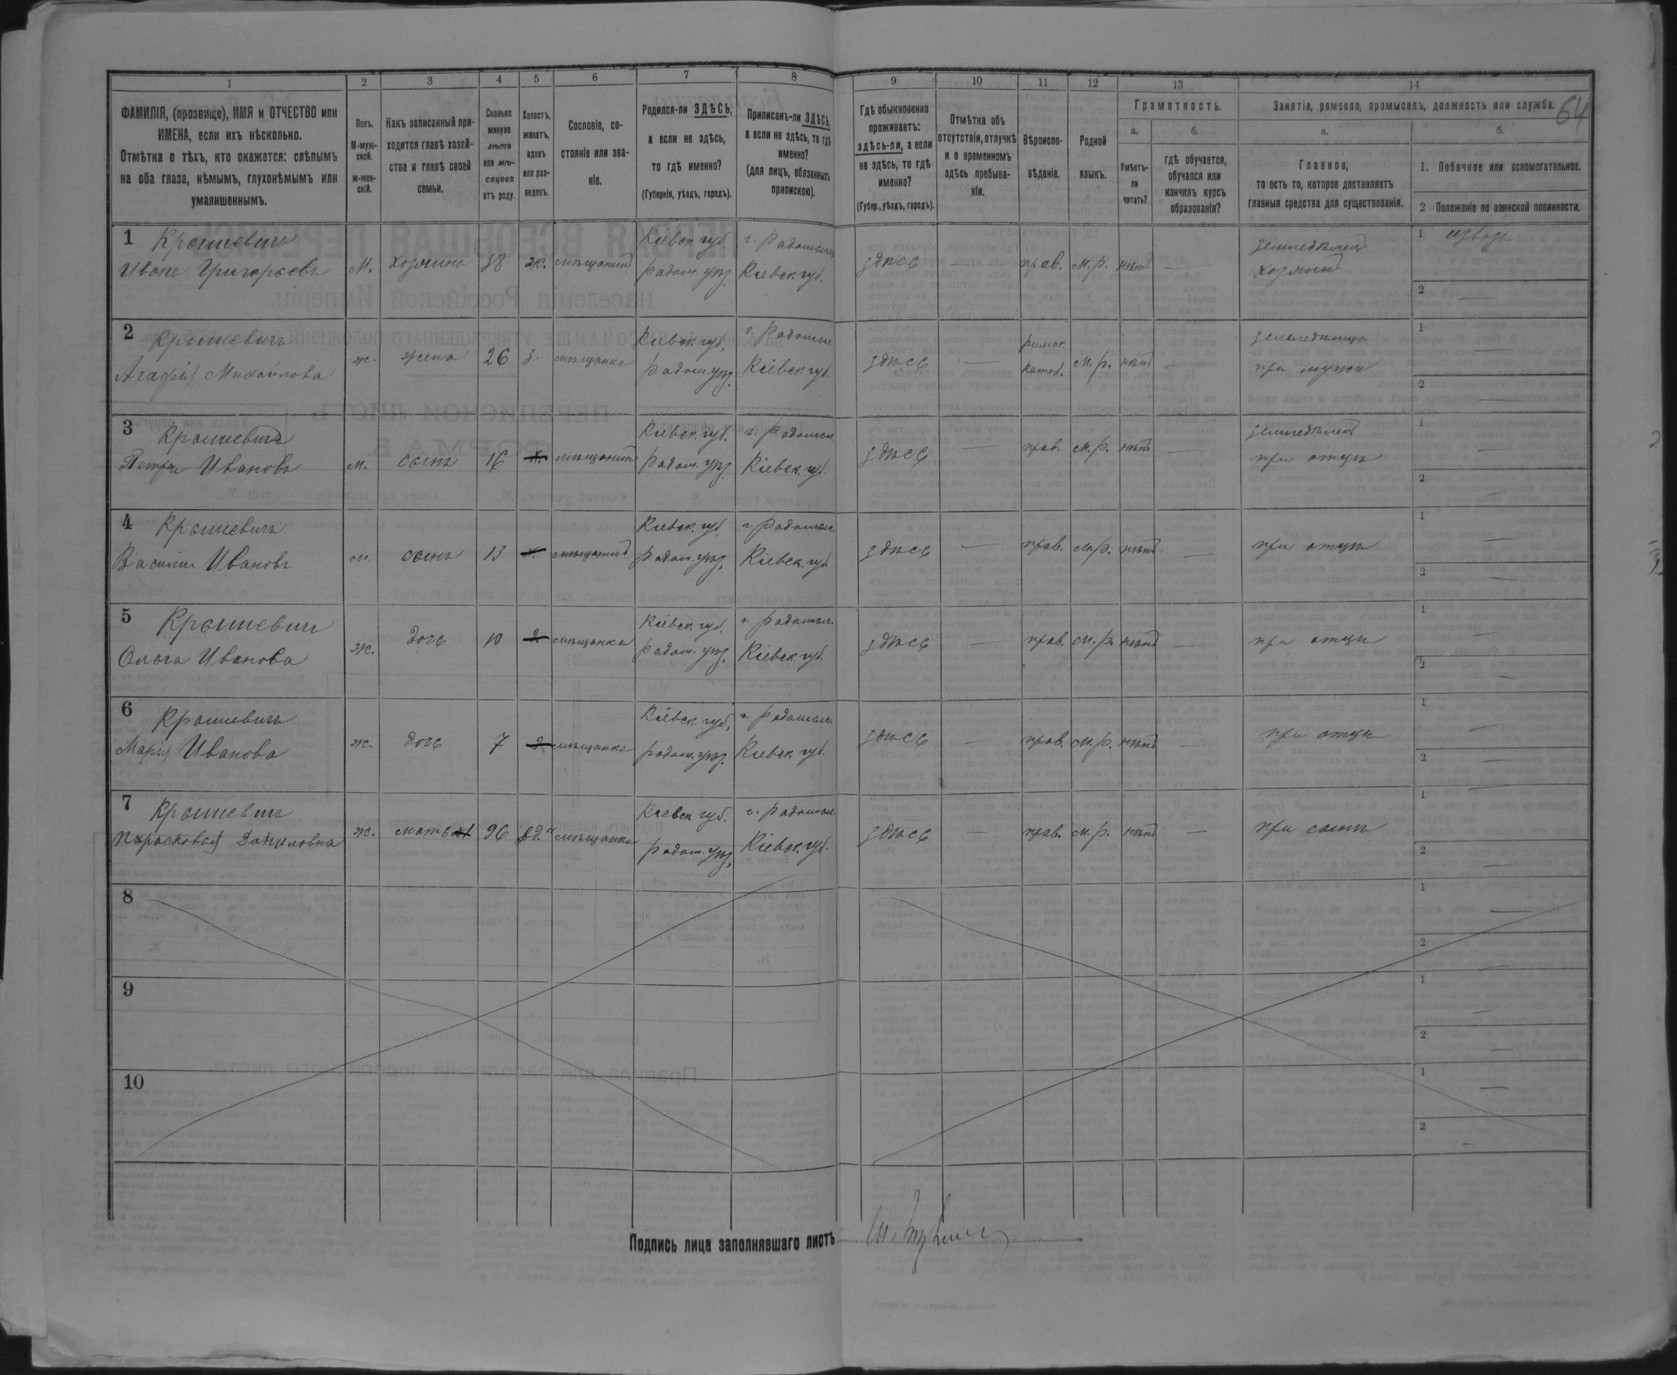 64
1 2 3 4 5 6 7 8 9 10 11 12 13 14
ФАМИЛІЯ, (прозвище), ИМЯ и ОТЧЕСТВО или
ИМЕНА, если ихъ нѣсколько.
Отмѣтка о тѣхъ, кто окажется: слѣпымъ
на оба глаза, нѣмымъ, глухонѣмымъ или
умалишеннымъ.
Полъ.
М-муж-
ской.
ж-жен-
скій.
Какъ записанный при-
ходится главѣ хозяй-
ства и главѣ своей
семьи.
Сколько
минуло
лѣтъ
или мѣ-
сяцевъ
отъ роду.
Холостъ,
женатъ,
вдовъ
или раз-
веденъ.
Сословіе, со-
стояніе или зва-
ніе.
Родился-ли ЗДѢСЬ,
а если не здѣсь,
то гдѣ именно?
(Губернія, уѣздъ, городъ).
Приписанъ-ли ЗДѢСЬ,
а если не здѣсь, то гдѣ
именно?
(для лицъ, обязанныхъ
припискою).
Гдѣ обыкновенно
проживаетъ:
здѣсь-ли, а если
не здѣсь, то гдѣ
именно?
(Губер., уѣздъ, городъ).
Отмѣтка объ
отсутствіи, отлучкѣ
и о временномъ
здѣсь пребыва-
ніи.
Вѣроиспо-
вѣданіе.
Родной
языкъ.
Грамотность.
а. б.
Умѣетъ-
ли
читать?
гдѣ обучается,
обучался или
кончилъ курсъ
образованія?
Занятіе, ремесло, промыселъ, должность или служба.
а. б.
Главное,
то есть то, которое доставляетъ
главныя средства для существованія.
1. Побочное или вспомогательное.
2 Положеніе по воинской повинности.
1 Крашевичъ Кіевск. губ. г. Радомысль земледѣлецъ 1 извозъ
Иванъ Григорьевъ М. хозяинъ 38 ж. мѣщанинъ радом. уѣз. Кіевск. губ. здѣсь — прав. м.р. нѣтъ — хозяинъ
2 —
2 Крашевичъ Кіевск. губ. г. Радомысл. римск. 1 —
Агафія Михайлова ж. жена 26 з. мѣщанка радом. уѣз. Кіевск. губ. здѣсь — катол. м.р. нѣтъ — при мужѣ
2 —
3 Крашевичъ Кіевск. губ. г. Радомысл. земледѣлецъ 1 —
Петръ Ивановъ м. сынъ 16 х. мѣщанинъ Радом. уѣз. Кіевск. губ. здѣсь прав. м.р. нѣтъ — при отцѣ
2 —
4 Крашевичъ Кіевск. губ. г. Радомысл. 1 —
Василій Ивановъ м. сынъ 13 х. мѣщанинъ Радом. уѣз. Кіевск. губ. здѣсь — прав. м.р. нѣтъ — при отцѣ
2 —
5 Крашевичъ Кіевск. губ. г. Радомысл. 1 —
Ольга Иванова ж. дочь 10 мѣщанка радом. уѣз. Кіевск. губ. здѣсь — прав. м.р. нѣтъ — при отцѣ
2 —
6 Крашевичъ Кіевск. губ. г. Радомысл. 1 —
Марія Иванова ж. дочь 7 мѣщанка радом. уѣз. Кіевск. губ. здѣсь — прав. м.р. нѣтъ — при отцѣ
2 —
7 Крашевичъ Кіевск. губ. г. Радомысл. 1 —
Парасковія Даниловна ж. мать 96 вд. мѣщанка радом. уѣз. Кіевск. губ. здѣсь — прав. м.р. нѣтъ — при сынѣ
2 —
8 1 —
2 —
9 1 —
2 —
10 1 —
2 —
Подпись лица заполнявшаго листъ